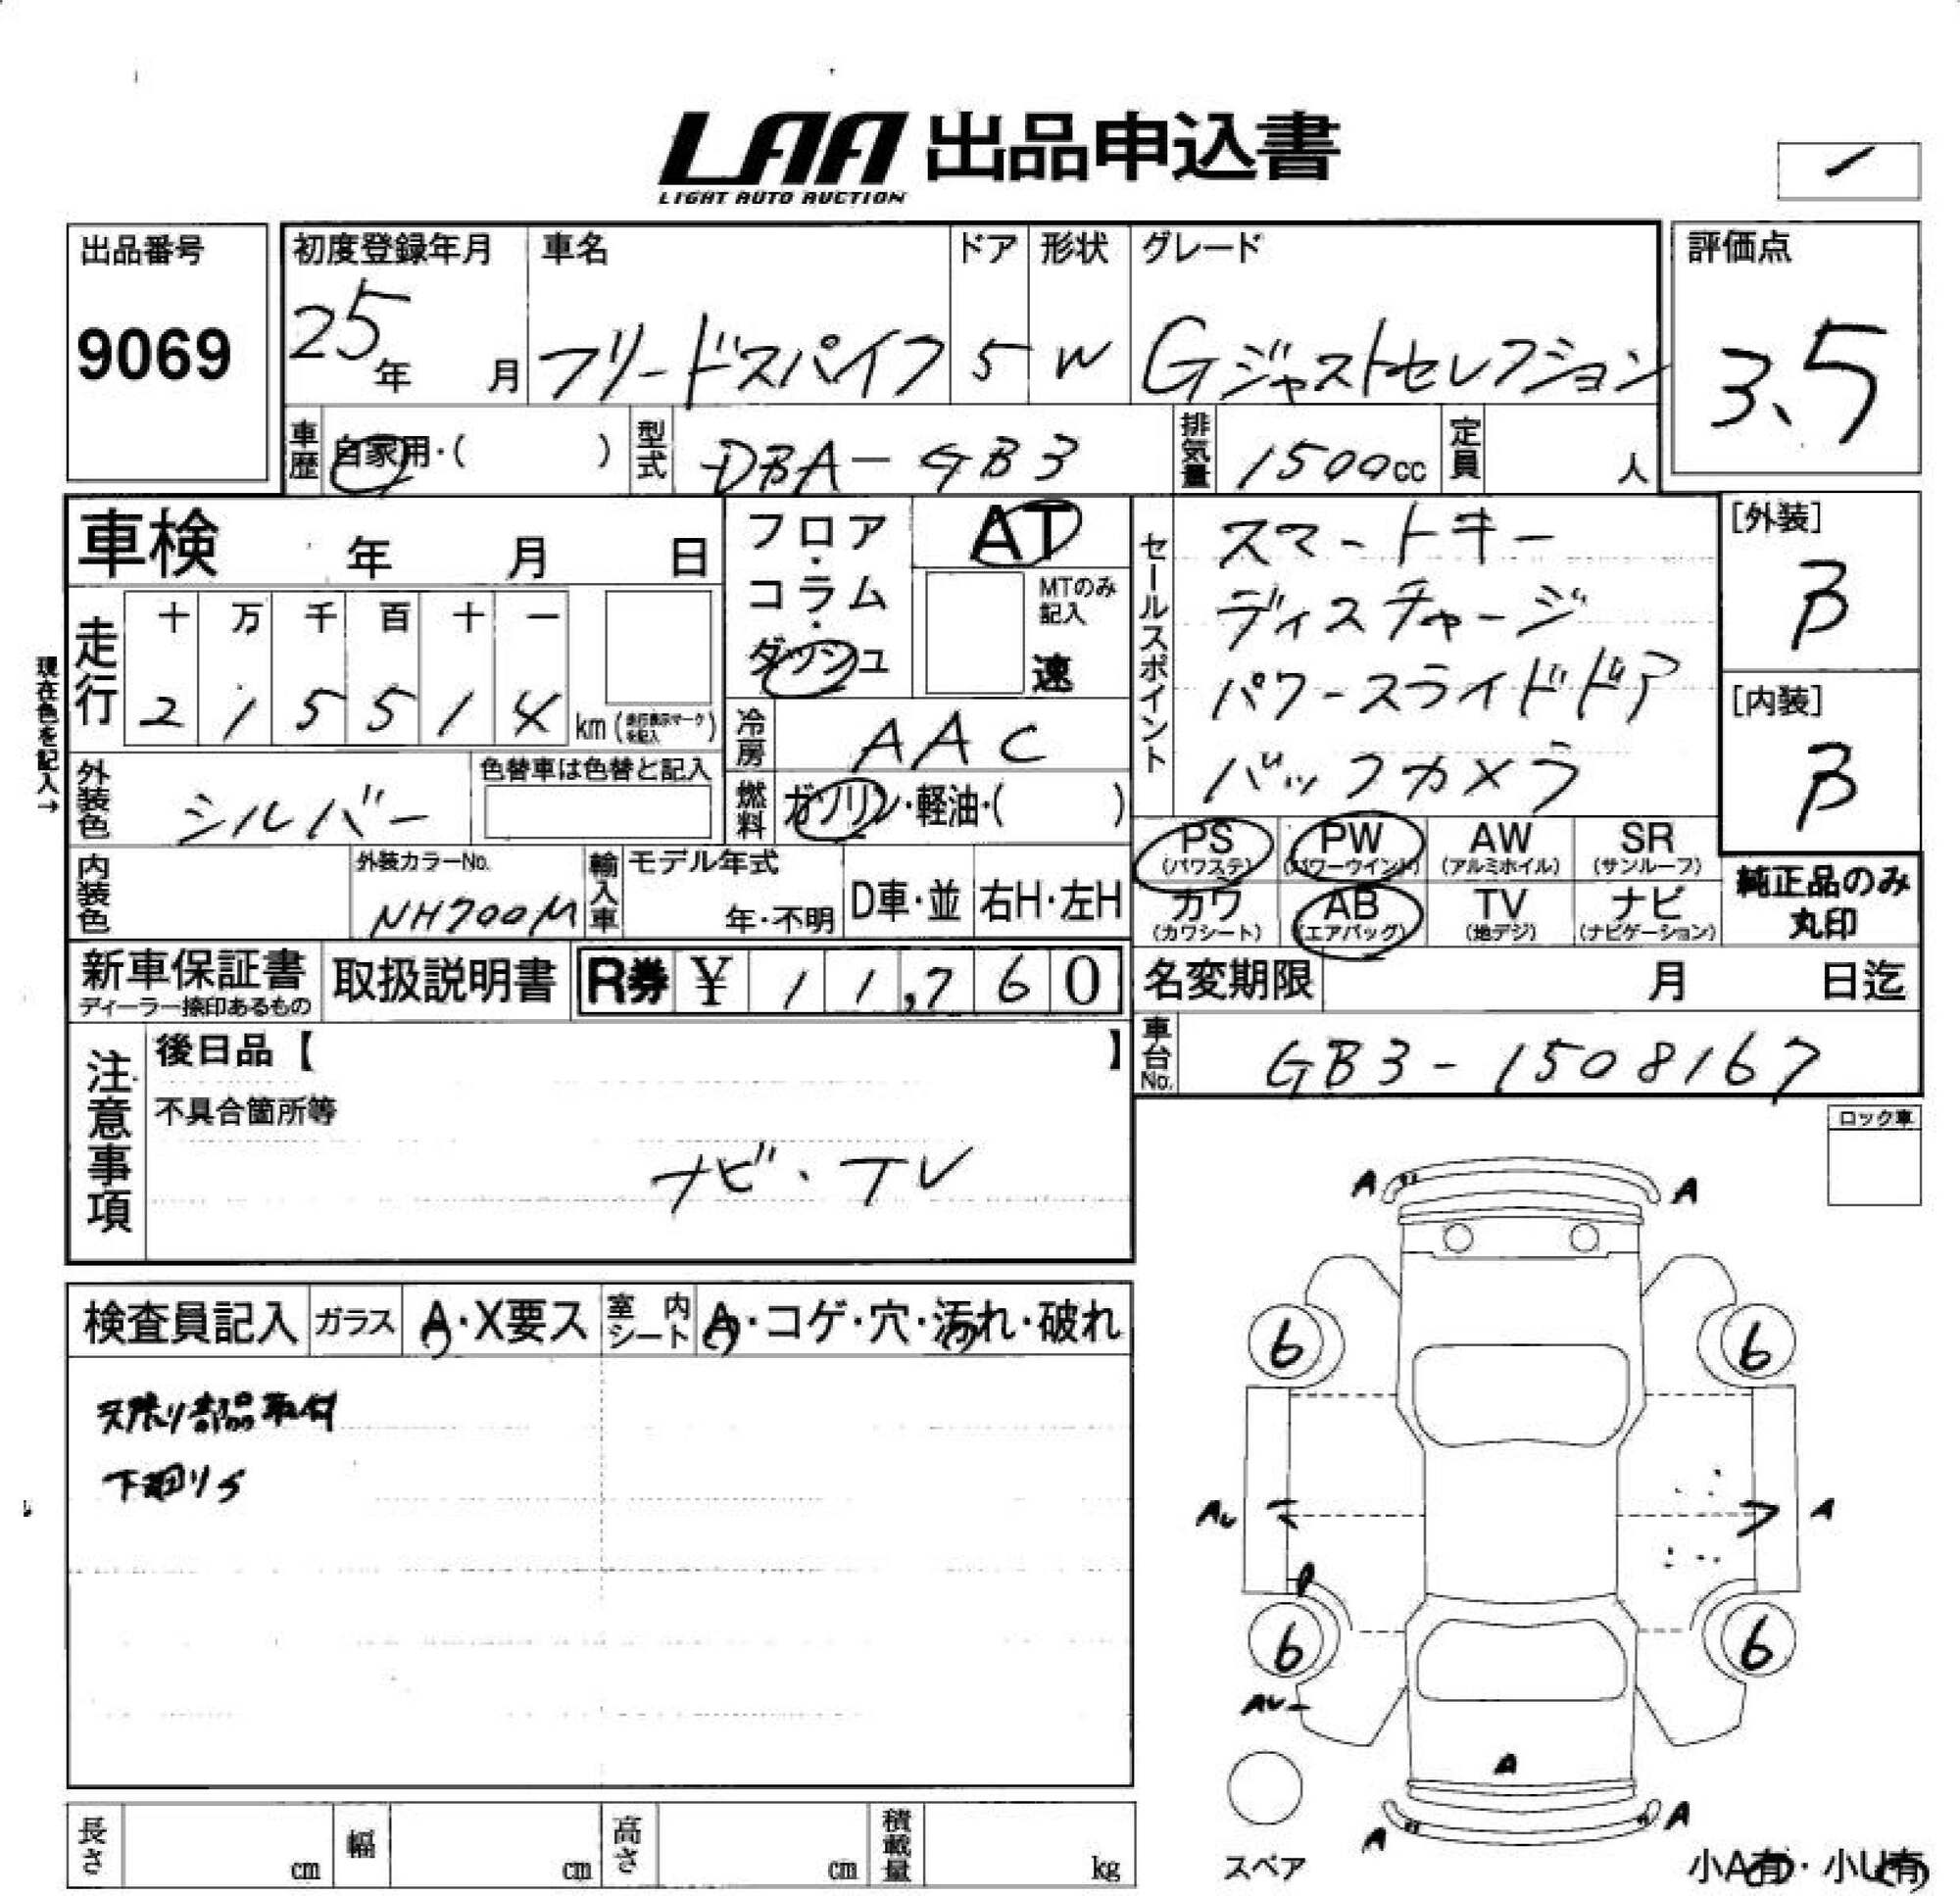 LAA 出品申込書
LIGHT AUTO AUCTION
出品番号
9069
初度登録年月
25年 月
車名
フリードスパイク
ドア
5
形状
W
グレード
Gジャストセレクション
評価点
3.5
車歴 自家用・( )
型式 DBA-GB3
排気量 1500cc
定員 人
車検 年 月 日
フロア・コラム・ダッシュ
AT
MTのみ記入
速
セールスポイント
スマートキー
ディスチャージ
パワースライドドア
バックカメラ
[外装]
B
[内装]
B
現在色を記入→
走行
十 万 千 百 十 一
2 1 5 5 1 4 km (走行表示マークを記入)
冷房 AAC
外装色 シルバー
色替車は色替と記入
燃料 ガソリン・軽油・( )
PS (パワステ)
PW (パワーウインド)
AW (アルミホイル)
SR (サンルーフ)
カワ (カワシート)
AB (エアバッグ)
TV (地デジ)
ナビ (ナビゲーション)
純正品のみ
丸印
内装色
外装カラーNo.
NH700M
輸入車
モデル年式
年・不明
D車・並
右H・左H
新車保証書
ディーラー捺印あるもの
取扱説明書
R券 ¥ 11,760
名変期限 月 日迄
車台No. GB3-1508167
注意事項
後日品【 】
不具合箇所等
ナビ・TV
ロック車
検査員記入
ガラス A・X要ス
室内シート A・コゲ・穴・汚れ・破れ
部品取付
下廻りS
A A
6 6
AU A
P
6 6
AU
A
A A
スペア
小A有・小U有
長さ cm
幅 cm
高さ cm
積載量 kg